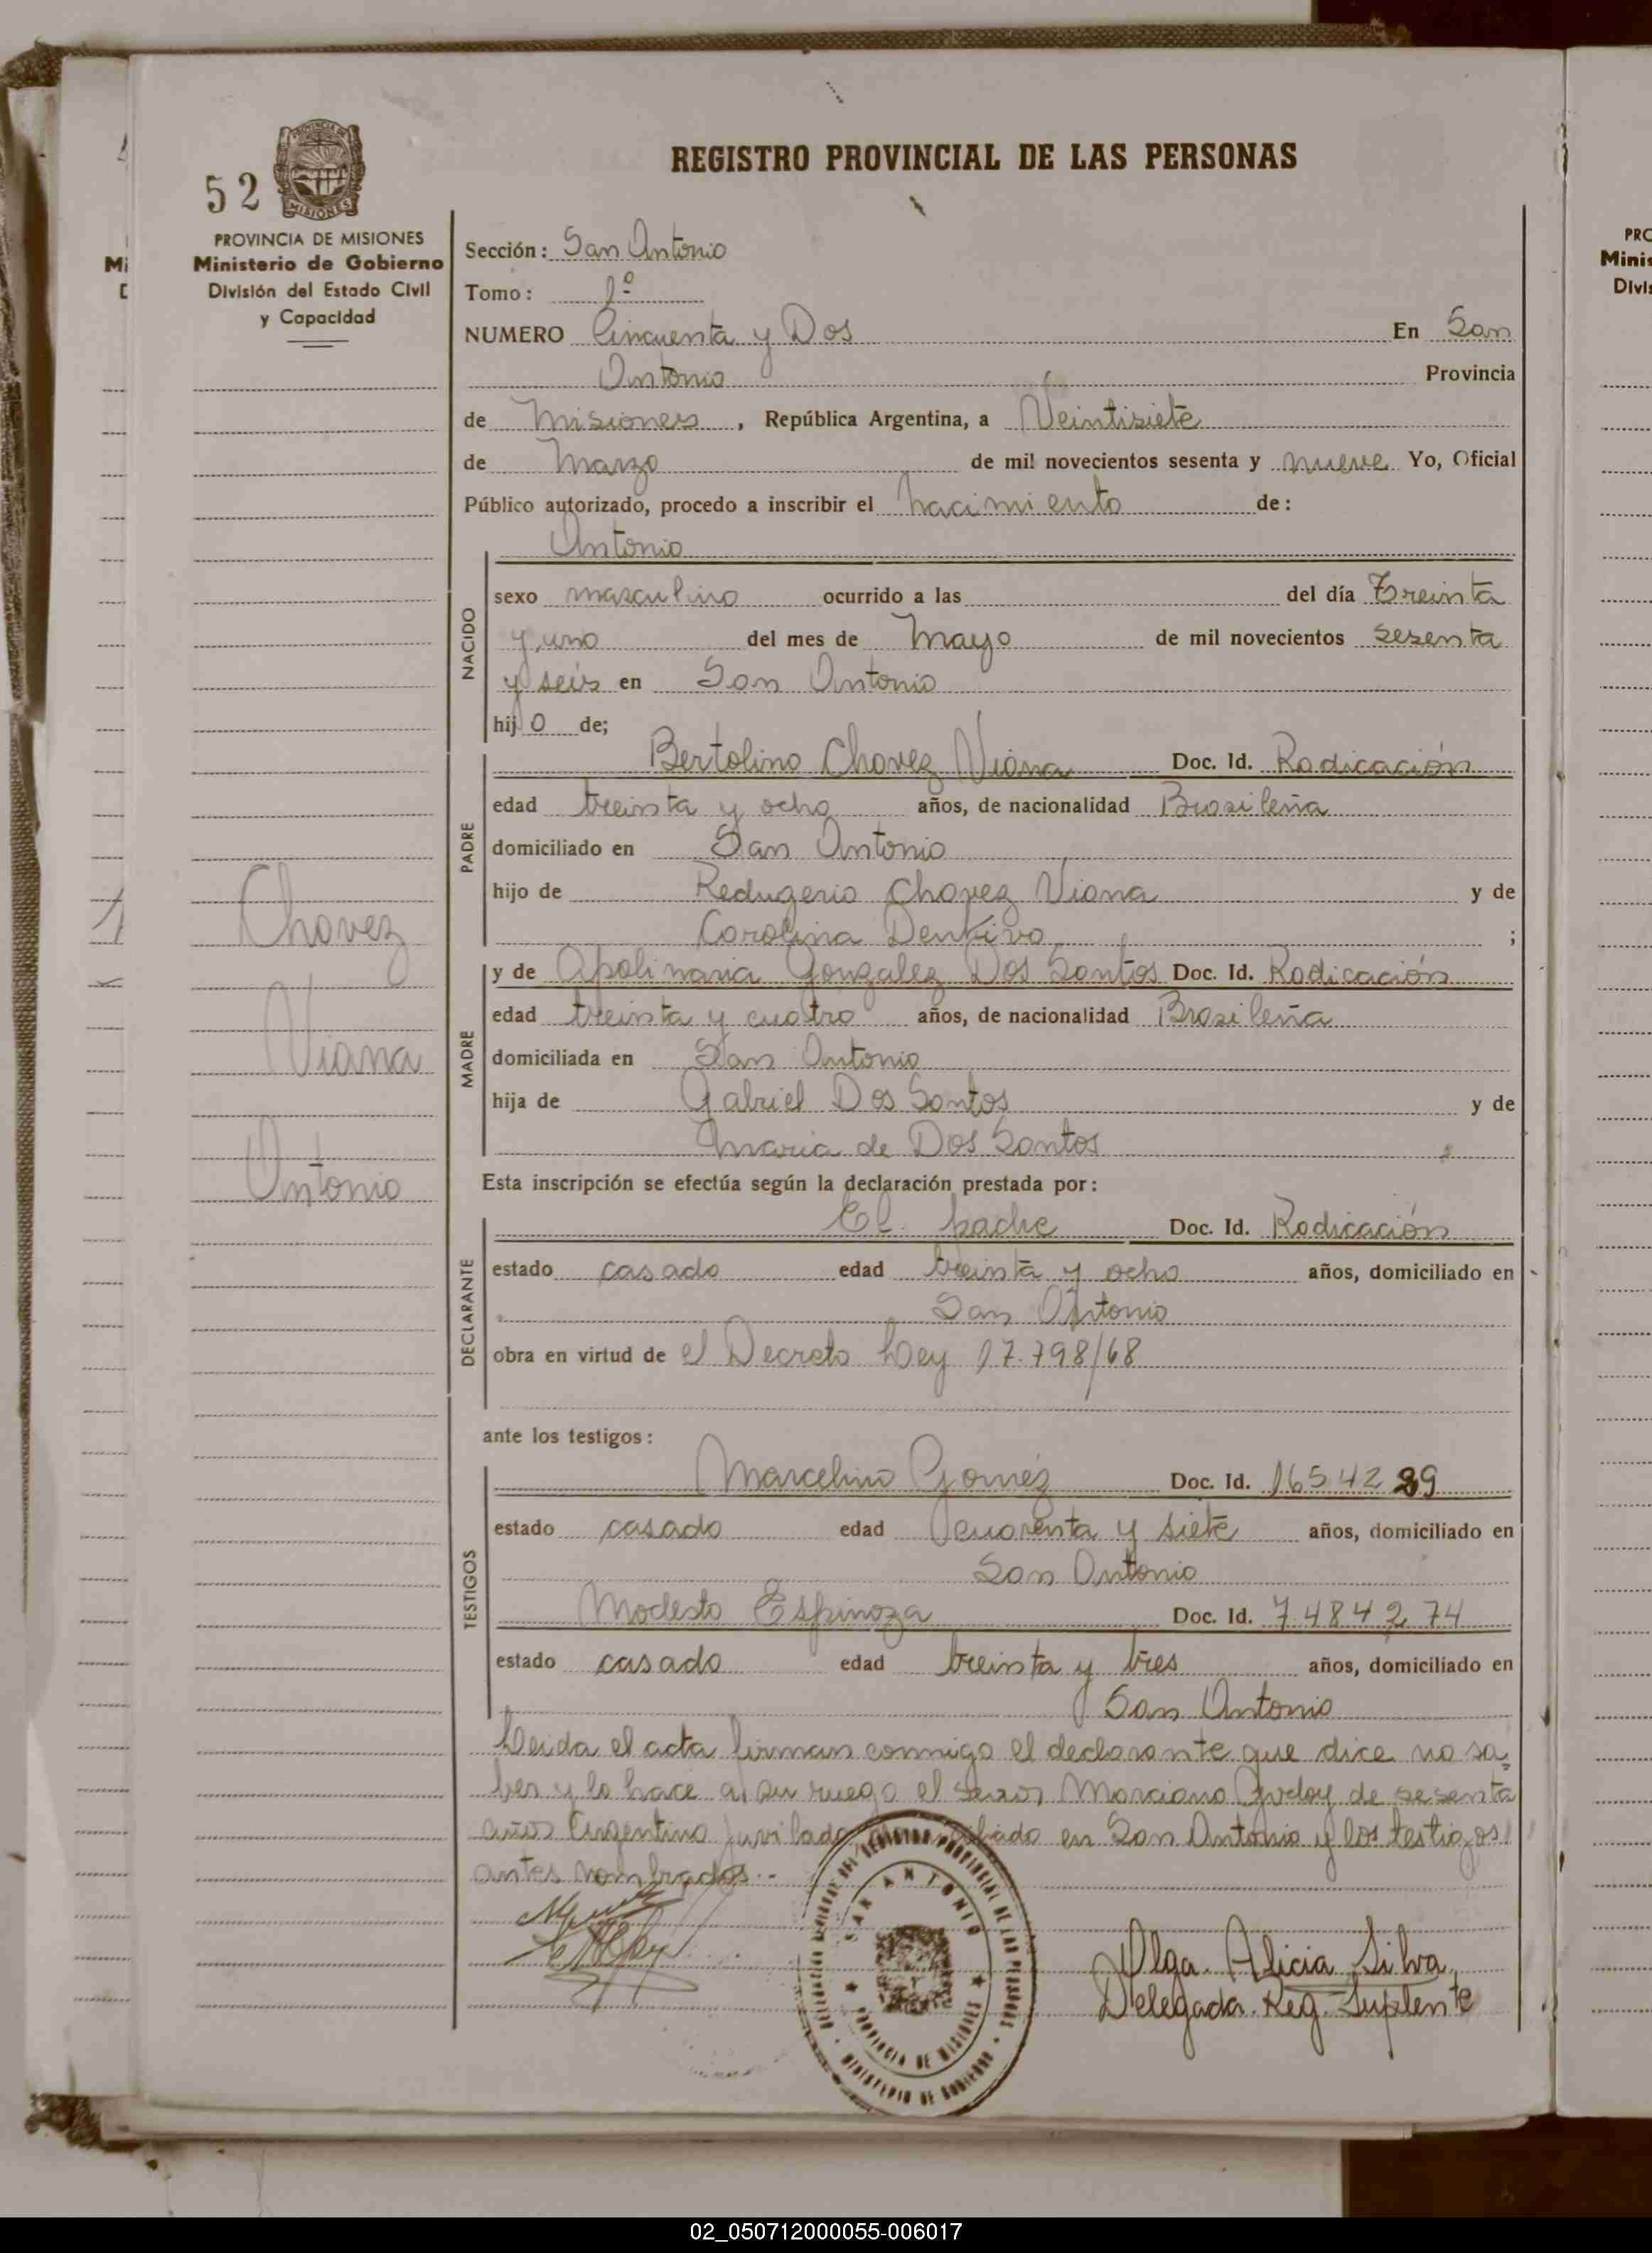 REGISTRO PROVINCIAL DE LAS PERSONAS
52
PROVINCIA DE MISIONES
Ministerio de Gobierno
División del Estado Civil
y Capacidad
Chavez
Viana
Antonio
Sección: San Antonio
Tomo: 1º
NUMERO Cincuenta y Dos En San
Antonio Provincia
de Misiones, República Argentina, a Veintisiete
de Marzo de mil novecientos sesenta y nueve Yo, Oficial
Público autorizado, procedo a inscribir el nacimiento de:
Antonio
NACIDO
sexo masculino ocurrido a las del día Treinta
y uno del mes de Mayo de mil novecientos sesenta
y seis en San Antonio
hijo de;
PADRE
Bertolino Chavez Viana Doc. Id. Radicación
edad treinta y ocho años, de nacionalidad Brasileña
domiciliado en San Antonio
hijo de Redugerio Chavez Viana y de
Carolina ;
MADRE
y de Apolinaria Gonzalez Dos Santos Doc. Id. Radicación
edad treinta y cuatro años, de nacionalidad Brasileña
domiciliada en San Antonio
hija de Gabriel Dos Santos y de
Maria de Dos Santos
Esta inscripción se efectúa según la declaración prestada por:
DECLARANTE
El padre Doc. Id. Radicación
estado casado edad treinta y ocho años, domiciliado en
San Antonio
obra en virtud de el Decreto Ley 17.798/68
ante los testigos:
TESTIGOS
Marcelino Gomez Doc. Id. 1654289
estado casado edad cuarenta y siete años, domiciliado en
San Antonio
Modesto Espinoza Doc. Id. 7.484274
estado casado edad treinta y tres años, domiciliado en
San Antonio
Leida el acta firman conmigo el declarante que dice no sa=
ber y lo hace a su ruego el señor Marciano Godoy de sesenta
años Argentino Juvilado en San Antonio y los testigos
antes nombrados.-
SAN ANTONIO
PROVINCIA DE MISIONES
MINISTERIO DE GOBIERNO
Olga Alicia Silva
Delegada Reg. Suplente
02_050712000055-006017